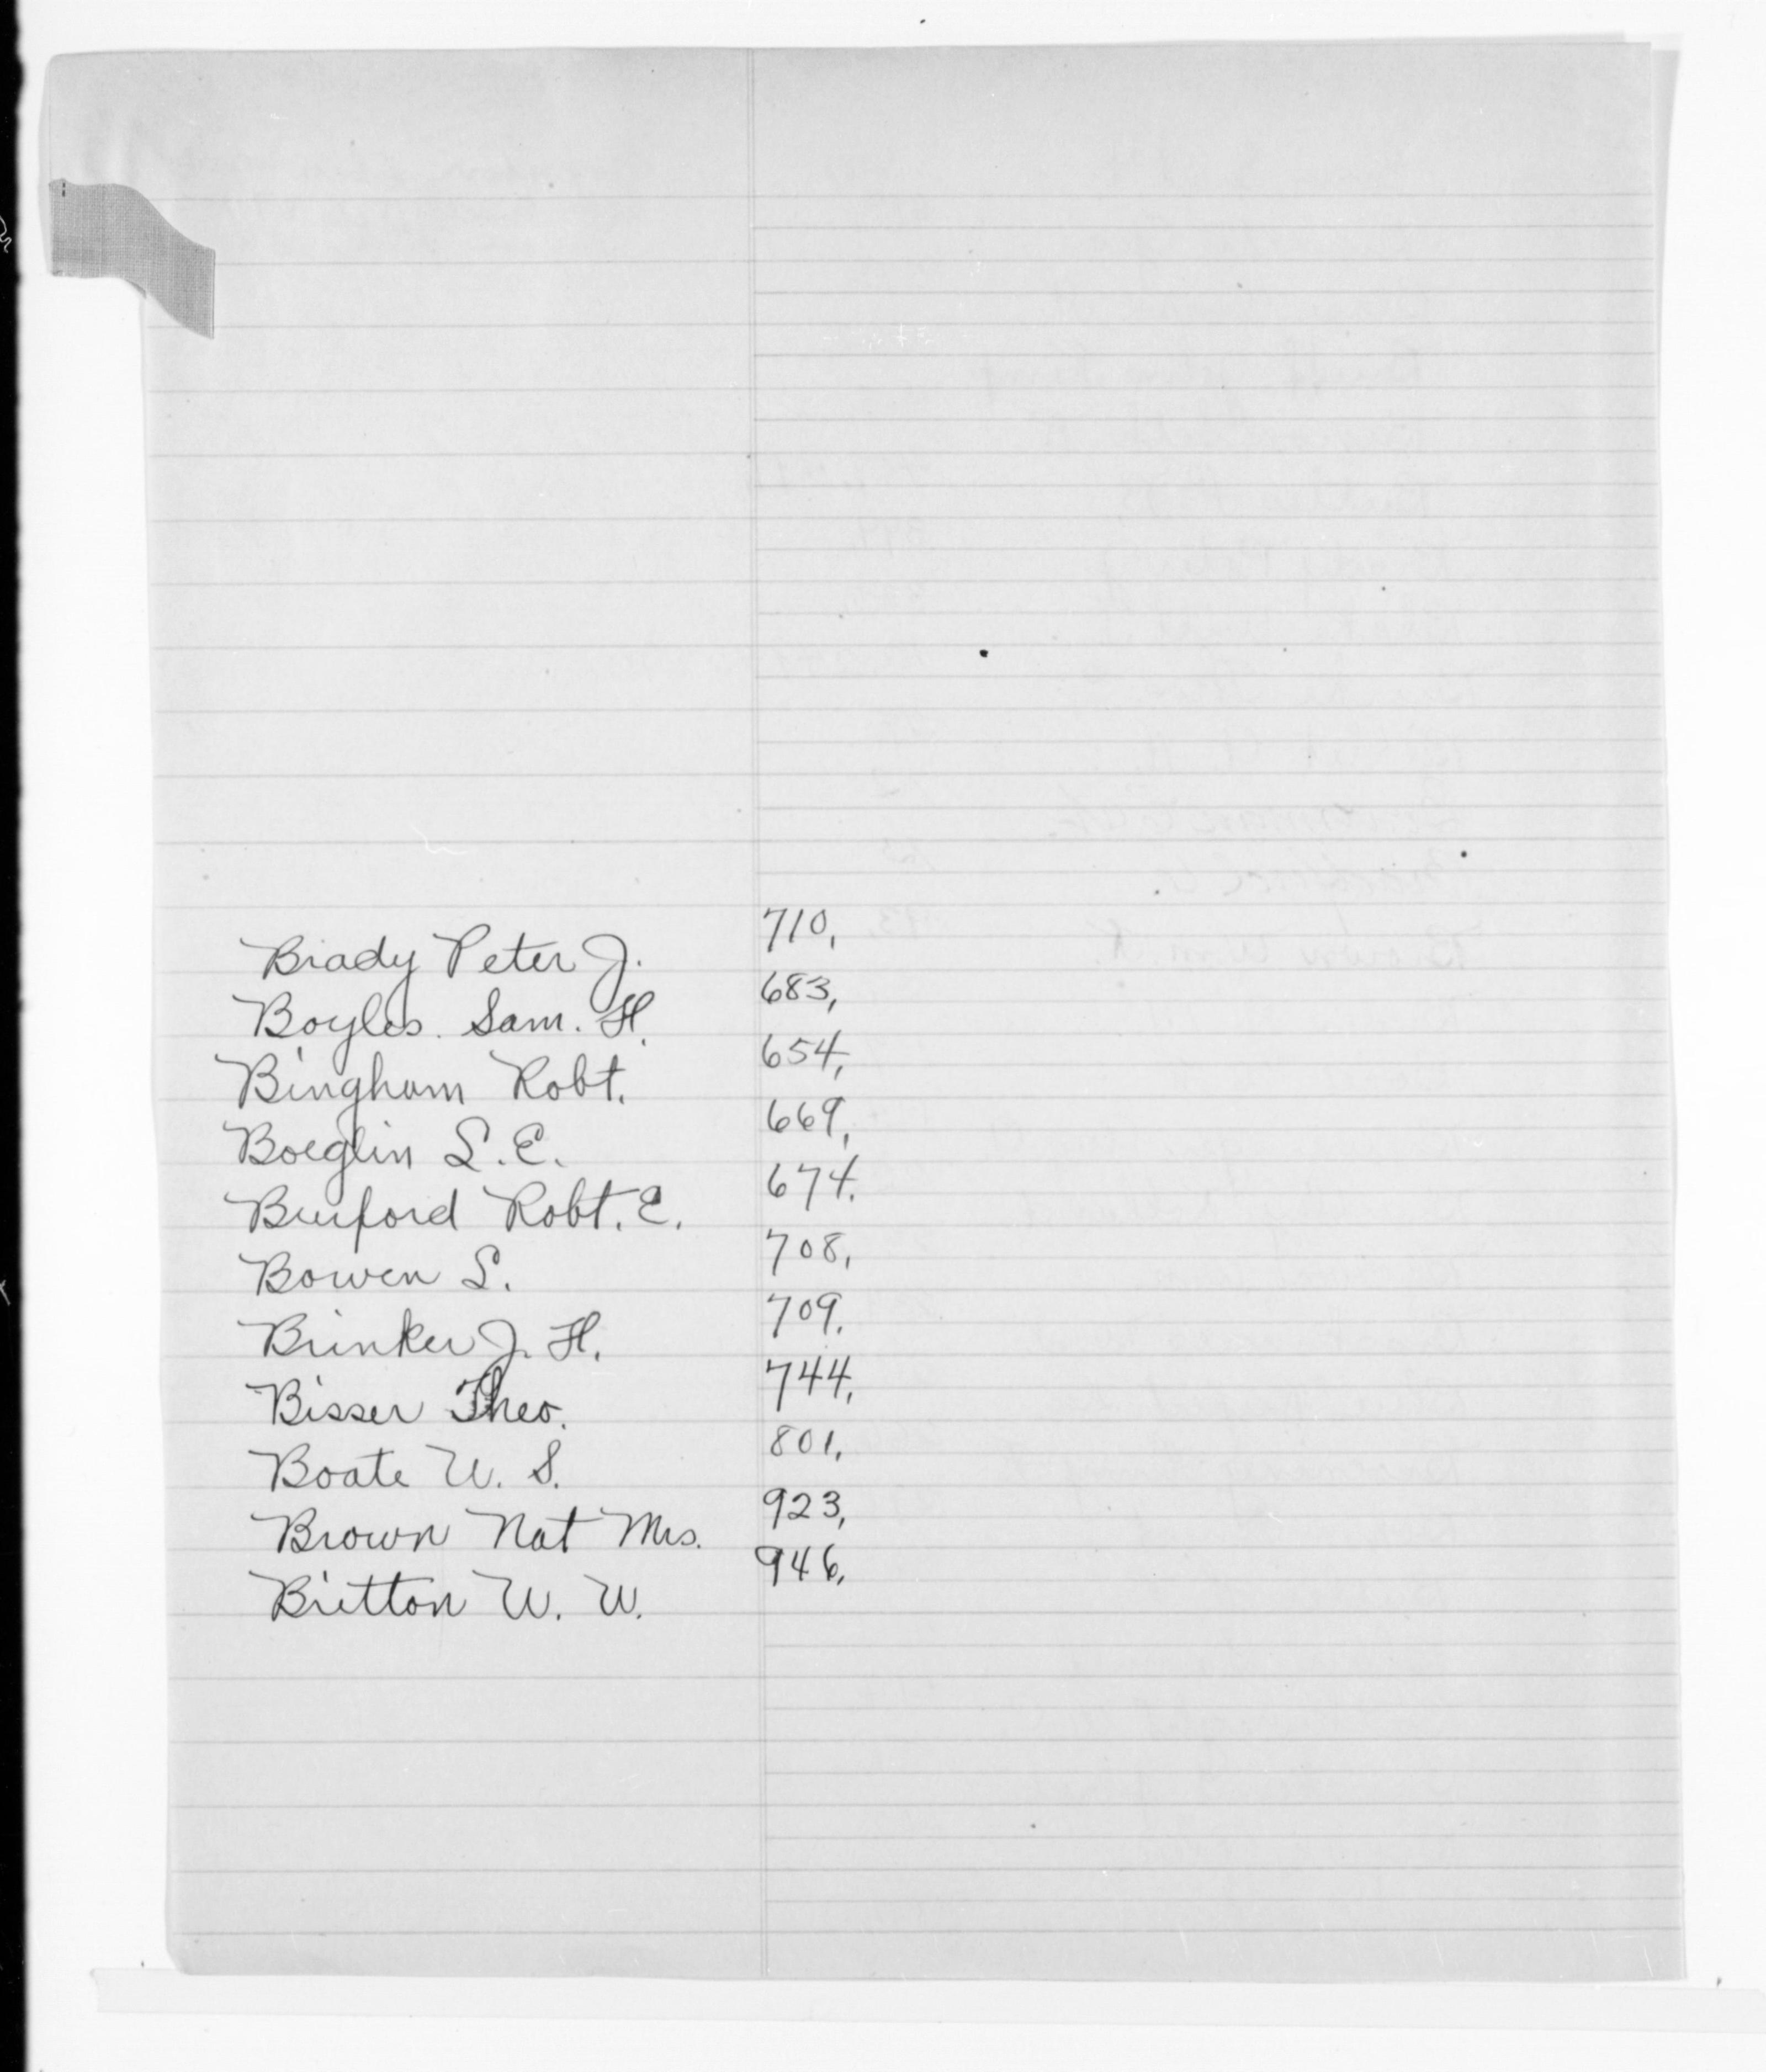 Brady Peter J. 710,
Boyles. Sam. H. 683,
Bingham Robt. 654,
Boeglin L. E. 669,
Burford Robt. E. 674.
Bowen S. 708,
Brinker J. H. 709.
Bisser Theo. 744,
Boate W. S. 801,
Brown Nat Mrs. 923,
Britton W. W. 946,